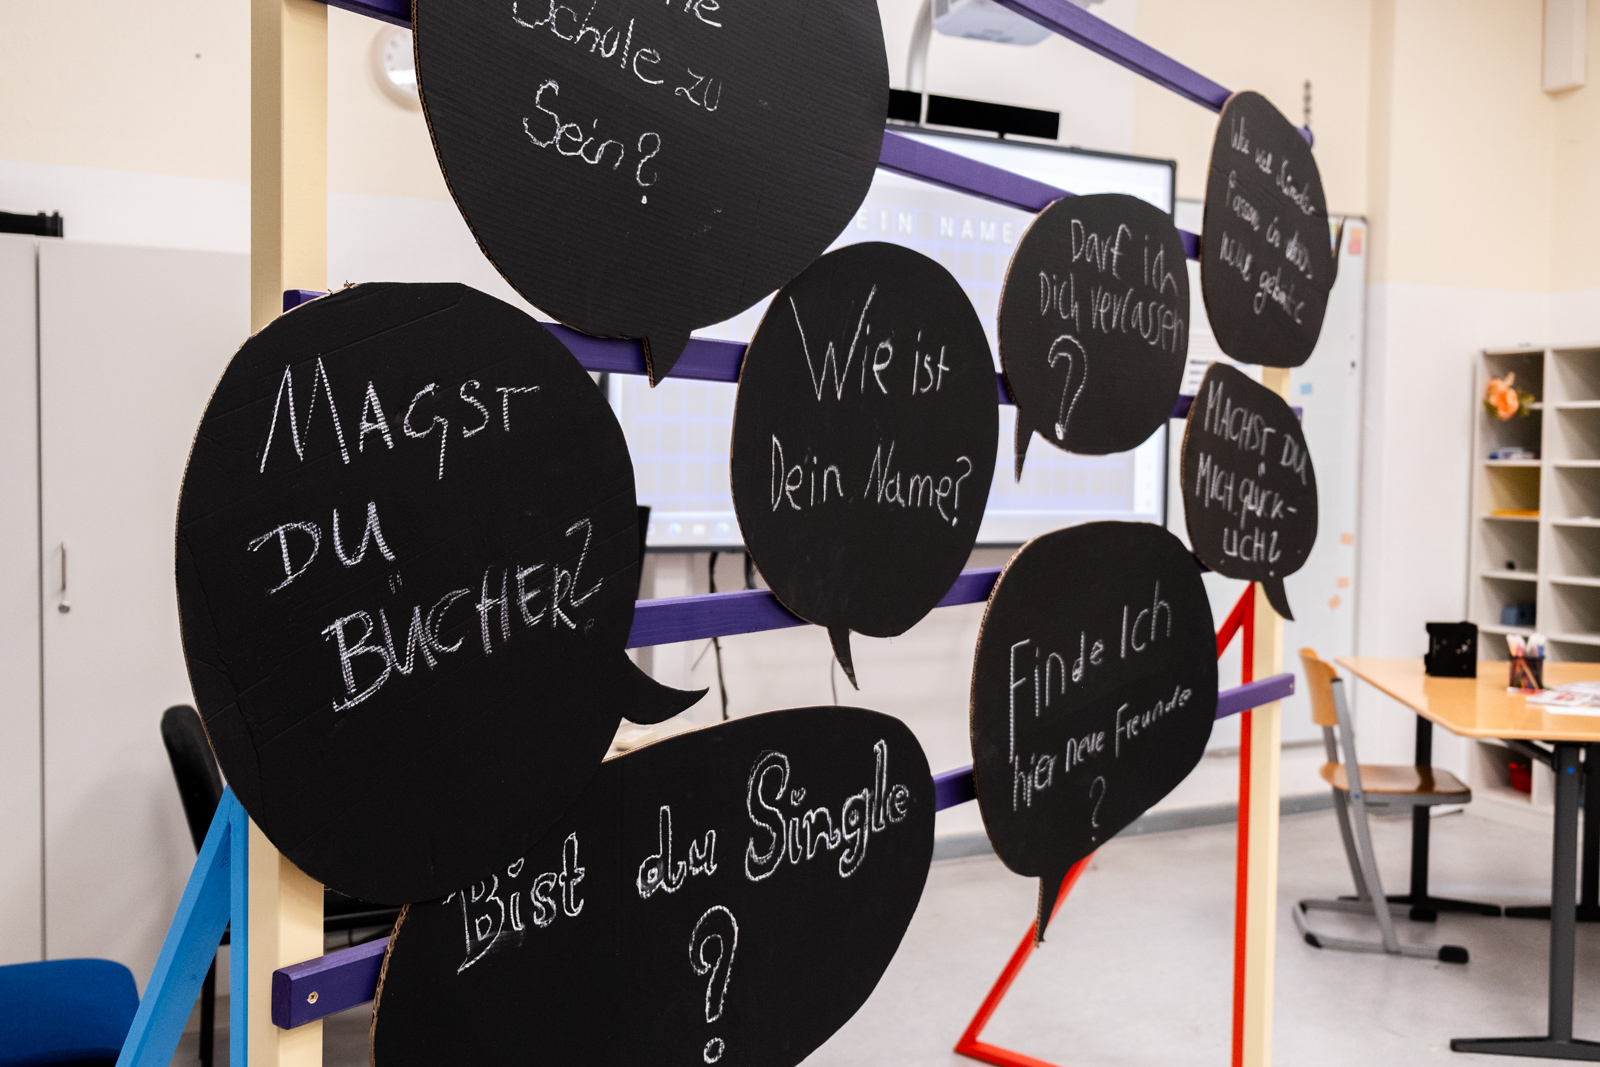 Schule zu
Sein?
Wie viel Kinder
passen in dass
neue gebäude
Darf ich
Dich verlassen
?
EIN NAME
Wie ist
Dein Name?
MAGST
DU
BÜCHER?
MACHST DU
MICH glück-
LICH?
Finde Ich
hier neue Freunde
?
Bist du Single
?